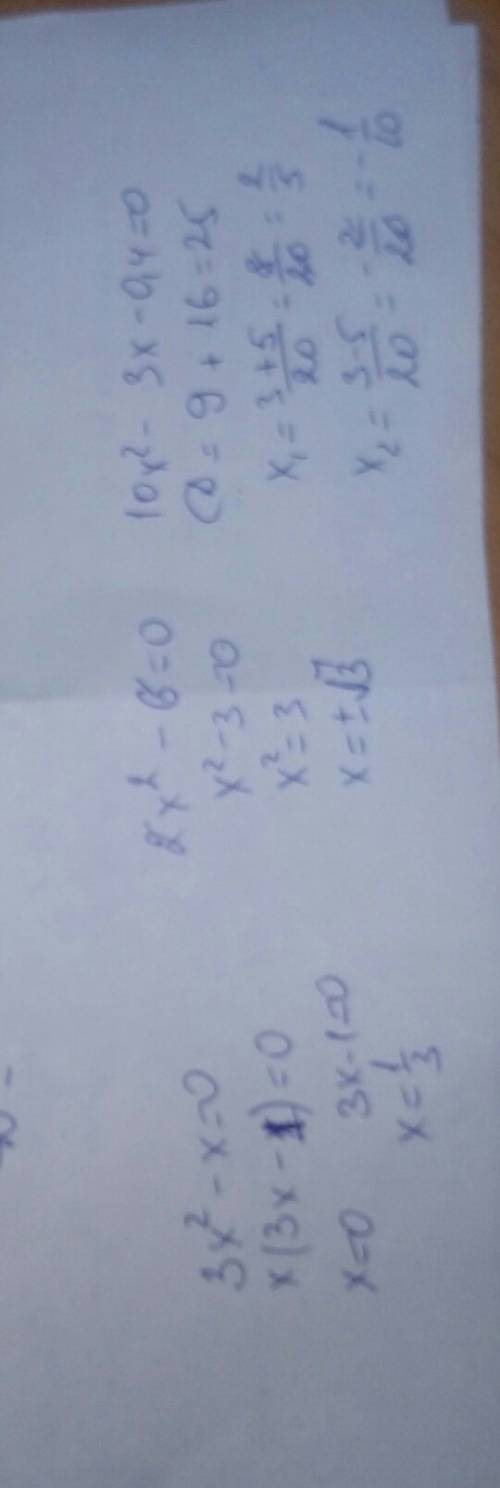 3x² - x = 0
x(3x - 1) = 0
x = 0 3x - 1 = 0
x = 1/3
2x² - 6 = 0
x² - 3 = 0
x² = 3
x = ±√3
10x² - 3x - 0,4 = 0
D = 9 + 16 = 25
x₁ = (3 + 5)/20 = 8/20 = 2/5
x₂ = (3 - 5)/20 = -2/20 = -1/10